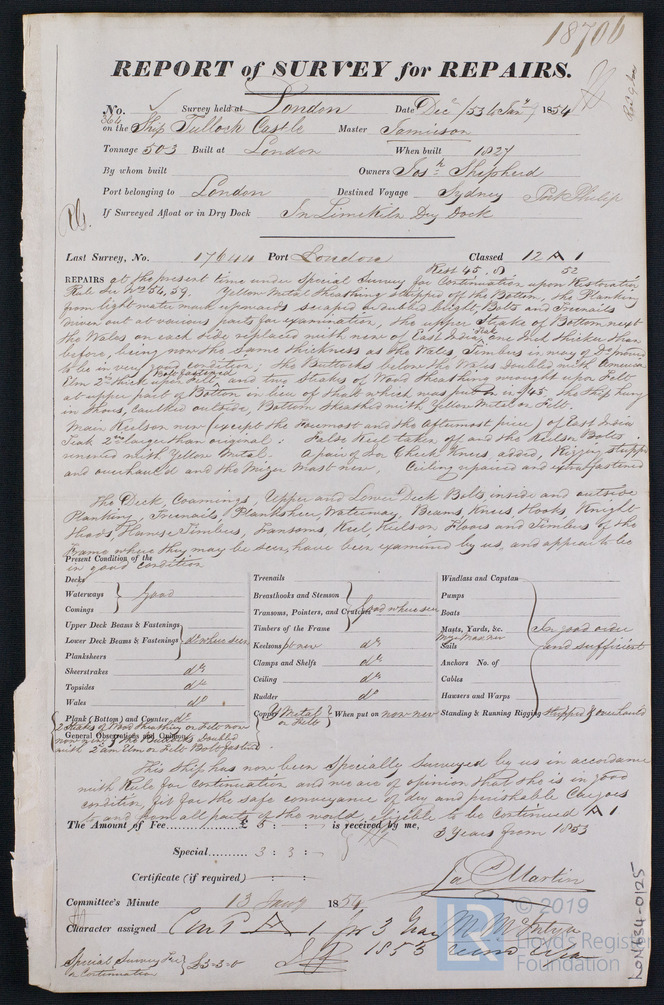 18706
REPORT of SURVEY for REPAIRS.
No. 364 Survey held at London Date Decr /53 to Jany 9 1854
on the Ship Tullock Castle Master Jamieson
Tonnage 503 Built at London When built 1827
By whom built Owners Josh Shepherd
Port belonging to London Destined Voyage Sydney Port Philip
If Surveyed Afloat or in Dry Dock In Limekiln Dry Dock
Last Survey, No. 17644 Port London Classed 12 A 1
Rest 45. 52
REPAIRS at the present time under Special Survey for Continuation upon Restoration
Rule See No 54, 59. Yellow Metal Sheathing stripped off the Bottom, the Planking
from light water mark upwards scraped or dubbed bright Bolts and Treenails
driven out at various parts for examination, the upper Strake of Bottom next
the Wales on each side replaced with new of East India Teak one Inch thicker than
before, being now the same thickness as the Wales, Timbers in way of
to be in very good condition; the Buttocks below the Wales Doubled with American
Elm 2in thick upon Felt Bolt fastened and two Strakes of Wood Sheathing wrought upon Felt
at upper part of Bottom in lieu of that which was put on in /45. The Ship hung
in Shores, caulked outside, Bottom sheathed with Yellow Metal on Felt.
Main Keelson new (except the Foremost and the Aftermost piece) of East India
Teak 2in larger than original: False Keel taken off and the Keelson Bolts
renewed with Yellow Metal. A pair of Iron Cheek Knees added, Rigging stripped
and overhauled and the Mizen Mast new. Ceiling repaired and extra fastened
The Deck, Coamings, Upper and Lower Deck Bolts inside and outside
Planking, Treenails, Planksheer, Waterway, Beams, Knees, Hooks, Knight
Heads, Hawse Timbers, Transoms, Keel, Keelson, Floors and Timbers of the
Frame where they may be seen, have been examined by us, and appear to be
in good condition
Present Condition of the
Decks
Waterways } good
Comings
Upper Deck Beams & Fastenings
Lower Deck Beams & Fastenings } do where seen
Planksheers
Sheerstrakes do
Topsides do
Wales do
Plank (Bottom) and Counter do
Treenails
Breasthooks and Stemson
Transoms, Pointers, and Crutches } good where seen
Timbers of the Frame
Keelsons pt new do
Clamps and Shelfs do
Ceiling do
Rudder do
Copper Y Metal on Felt } When put on now new
Windlass and Capstan
Pumps
Boats
Masts, Yards, &c. Mizn Mast new
Sails
Anchors No. of
Cables
Hawsers and Warps
} In good order and sufficient
Standing & Running Rigging stripped & overhauled
2 Strakes of Wood Sheathing on Felt now
General Observations and Opinion
now new & the Buttocks Doubled
with 2in am Elm on Felt Bolt fastened
This Ship has now been Specially Surveyed by us in accordance
with Rule for Continuation and we are of opinion that she is in good
condition, fit for the safe conveyance of dry and perishable Cargoes
to and from all parts of the world, eligible to be continued A 1
3 Years from 1853
The Amount of Fee £ 5 : - : - is received by me,
Special 3 : 3 : -
Certificate (if required)
Jas C Martin
Committee's Minute 13 Jany 1854
Character assigned Cont A 1 for 3 Years
1853
Special Survey Fee
on Continuation } £3-3-0
© 2019
LR
Lloyd's Register
Foundation
LON634-0125